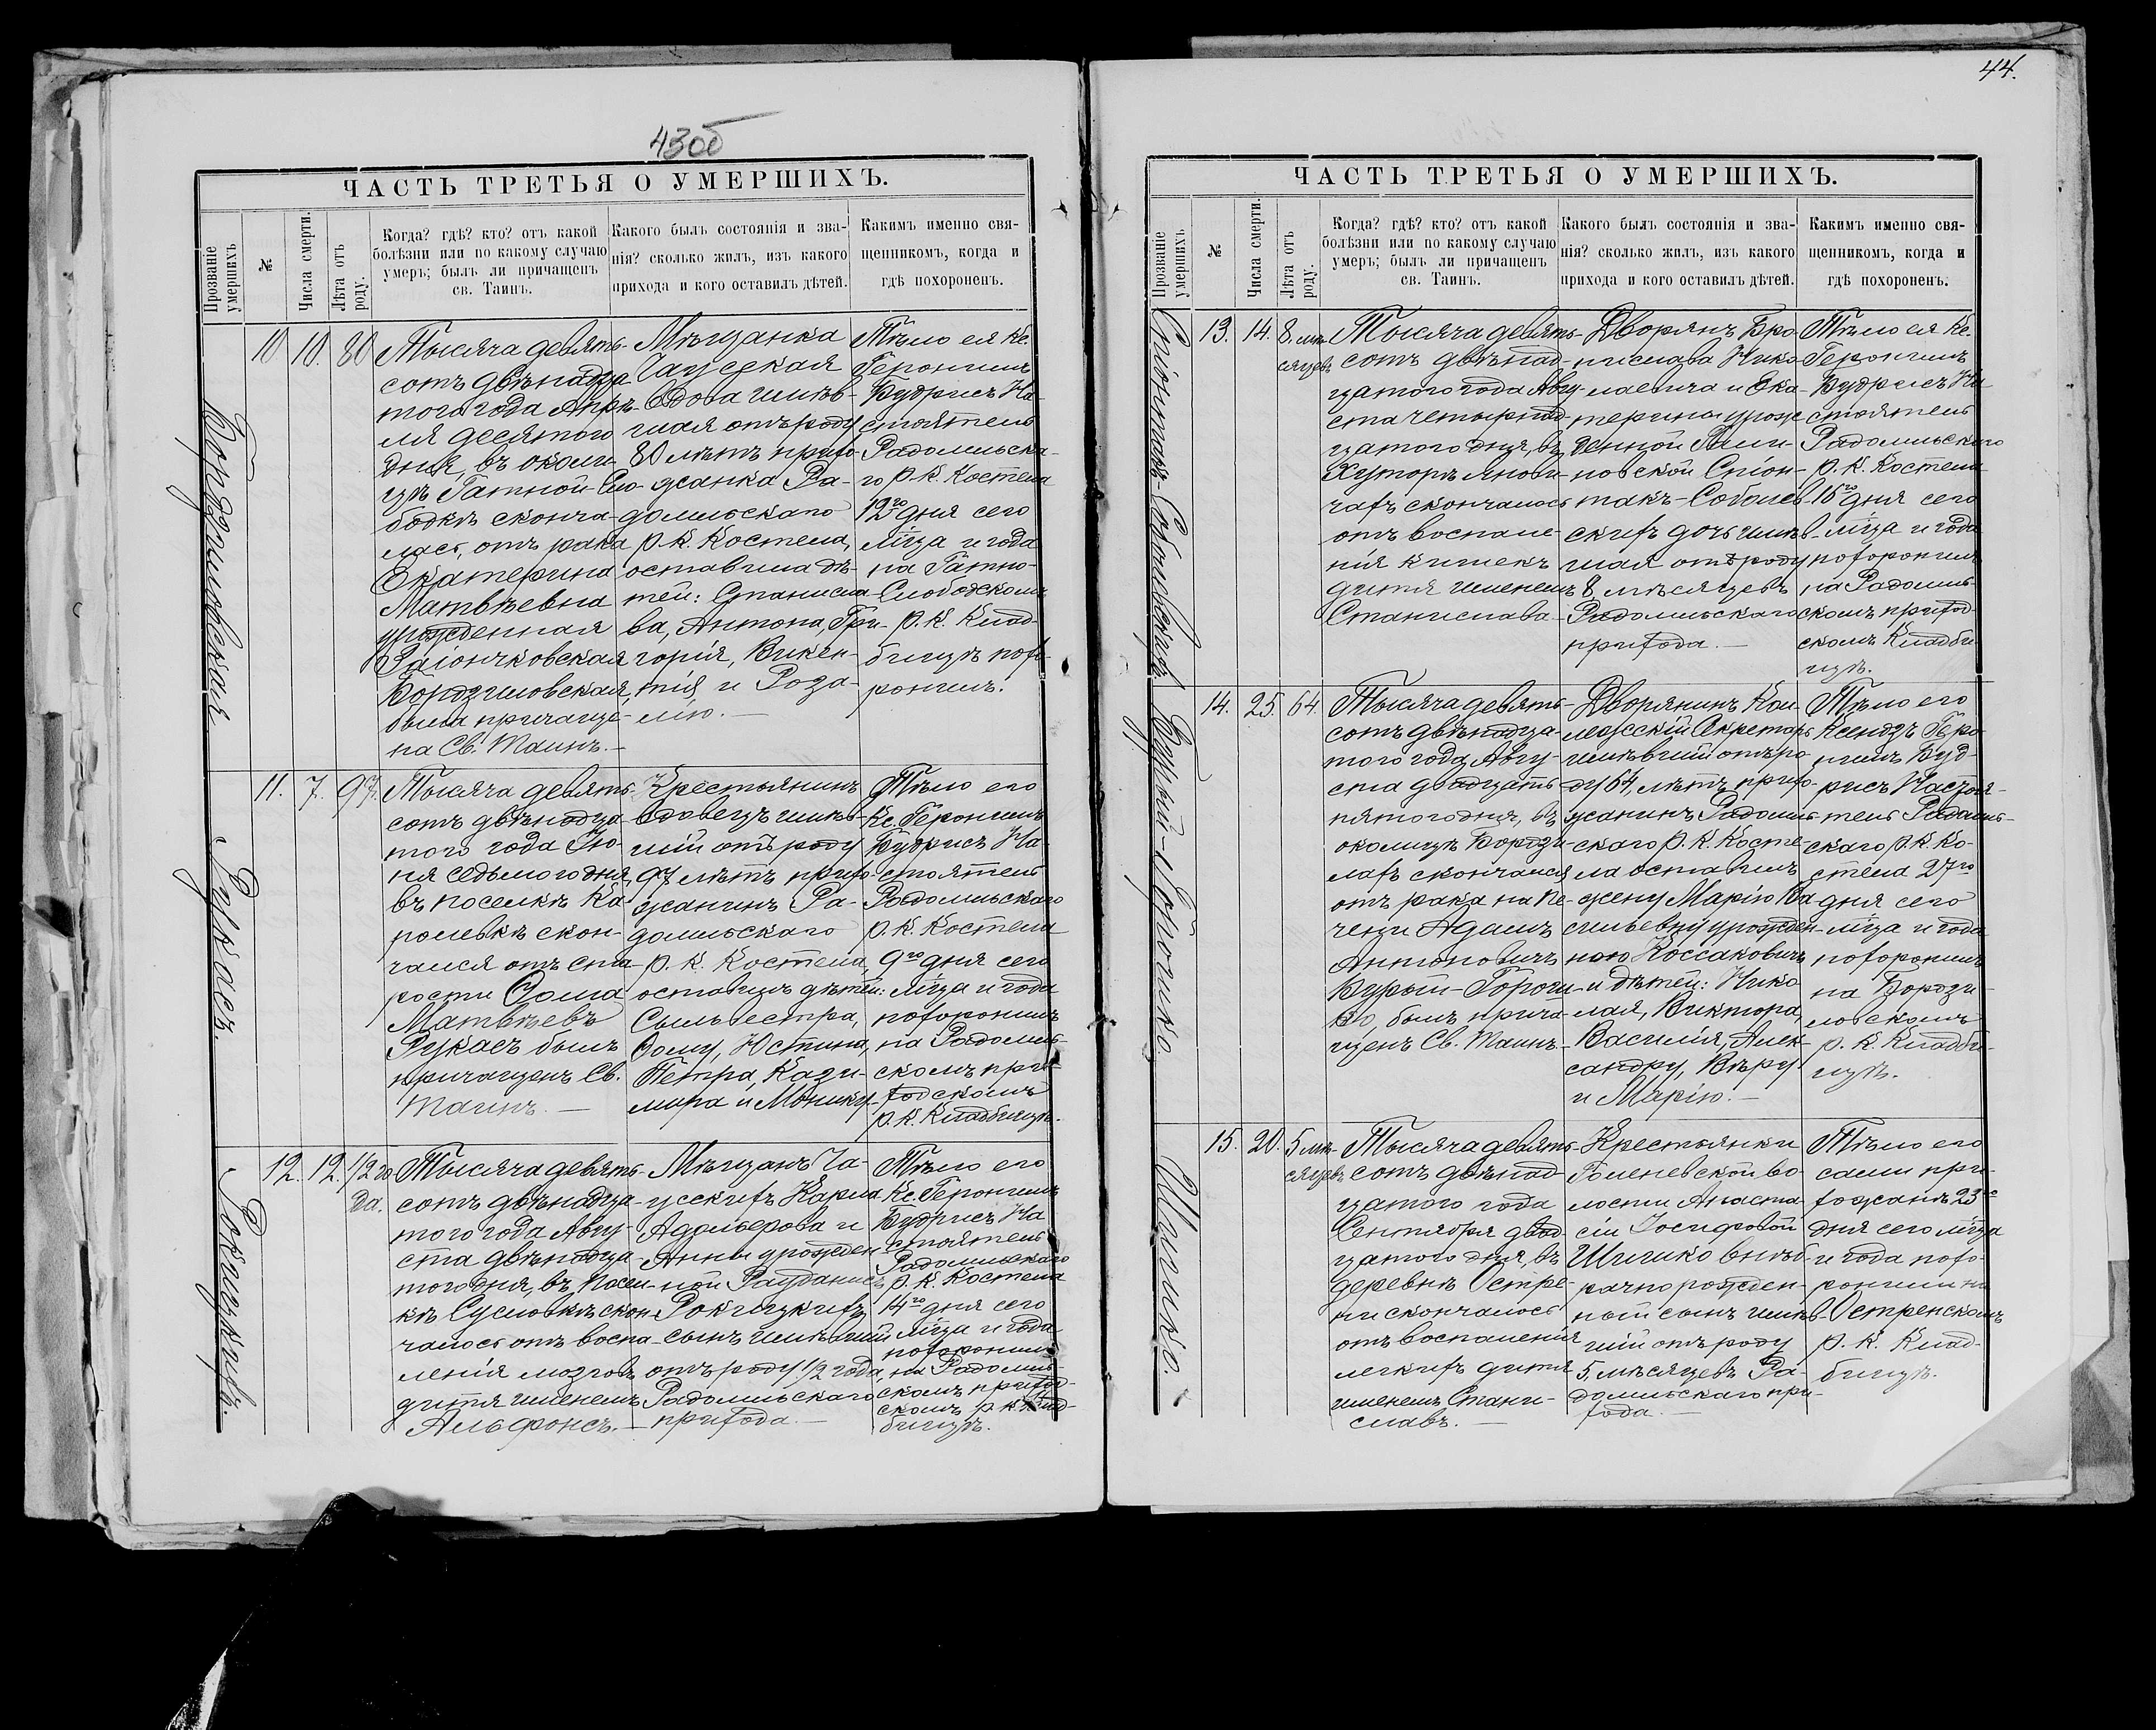 43об
ЧАСТЬ ТРЕТЬЯ О УМЕРШИХЪ.
Прозваніе умершихъ
№
Числа смерти.
Лѣта отъ роду.
Когда? гдѣ? кто? отъ какой
болѣзни или по какому случаю
умеръ; былъ ли причащенъ
св. Таинъ.
Какого былъ состоянія и зва-
нія? сколько жилъ, изъ какого
прихода и кого оставилъ дѣтей.
Какимъ именно свя-
щенникомъ, когда и
гдѣ похороненъ.
Бордзиловская
10
10.
80
Тысяча девять-
сотъ двѣнадца-
того года Апрѣ-
ля десятого
дня, въ околи-
цѣ Гатной-Сло-
бодкѣ сконча-
лась, отъ рака
Екатерина
Матвѣевна
урожденная
Заіончковская
Бордзиловская,
была причаще-
на Св. Таинъ.-
Мѣщанка
Чаусская
Вдова имѣв-
шая отъ роду
80 лѣтъ прихо-
жанка Ра-
домльскаго
р. К. Костела,
оставила дѣ-
тей: Станисла-
ва, Антона, Гри-
горія, Викен-
тія и Роза-
лію.-
Тѣло ея Кс.
Геронимъ
Будрисъ На-
стоятель
Радомльска-
го р. К. Костела
12го дня сего
м҃ца и года
на Гатно-
Слободскомъ
р. К. Клад-
бищѣ похо-
ронилъ.
Рукасъ.
11.
7.
97.
Тысяча девять-
сотъ двѣнадца-
того года Ію-
ня седьмого дня,
въ поселкѣ Ка
ролевкѣ скон-
чался отъ ста-
рости Ѳома
Матвѣевъ
Рукасъ былъ
причащенъ Св.
Таинъ.-
Крестьянинъ
Вдовецъ имѣв-
шій отъ роду
97 лѣтъ прихо-
жанинъ Ра-
домльскаго
р. К. Костела,
оставилъ дѣтей:
Сильвестра,
Ѳому, Юстина,
Петра, Кази-
мира и Монику-
Тѣло его
Кс. Геронимъ
Будрисъ На-
стоятель
Радомльскаго
р. К. Костела
9го дня сего
м҃ца и года
похоронилъ
на Радомль-
скомъ при-
ходскомъ
р. К. Кладбищѣ.
Рокицкихъ.
12.
12.
1/2 го
да.
Тысяча девять-
сотъ двѣнадца-
того года Авгу-
ста двѣнадца-
того дня, въ посел-
кѣ Сусловкѣ скон-
чалось отъ воспа-
ленія мозговъ
дитя именемъ
Альфонсъ.-
Мѣщанъ Ча-
усскихъ Карла
Адольфова и
Анны урожден-
ной
Рокицкихъ
сынъ имѣвшій
отъ роду 1/2 года
Радомльскаго
прихода.-
Тѣло его
Кс. Геронимъ
Будрисъ На
стоятель
Радомльскаго
р. К. Костела
14го дня сего
м҃ца и года
похоронилъ
на Радомль-
скомъ приход-
скомъ р. К. Клад-
бищѣ.
44.
ЧАСТЬ ТРЕТЬЯ О УМЕРШИХЪ.
Прозваніе умершихъ
№
Числа смерти.
Лѣта отъ роду.
Когда? гдѣ? кто? отъ какой
болѣзни или по какому случаю
умеръ; былъ ли причащенъ
св. Таинъ.
Какого былъ состоянія и зва-
нія? сколько жилъ, изъ какого
прихода и кого оставилъ дѣтей.
Какимъ именно свя-
щенникомъ, когда и
гдѣ похороненъ.
13.
14.
8. мѣ-
сяцевъ
Тысяча девять-
сотъ двѣнад-
цатого года Авгу-
ста четырнад-
цатого дня, въ
Хуторѣ
чахъ скончалось
отъ воспале-
нія кишекъ
дитя именемъ
Станислава-
Дворянъ Бро-
нислава Нико-
лаевича и Ека-
терины урож-
денной
новской Спіон-
такъ-Соболев-
скихъ дочь имѣв-
шая отъ роду
8, мѣсяцевъ
Радомльскаго
прихода.-
Тѣло ея Кс.
Геронимъ
Будрисъ На
стоятель
Радомльскаго
р. К. Костела
16го дня сего
м҃ца и года
похоронилъ
на Радомль-
скомъ приход-
скомъ Кладби-
щѣ.
14.
25.
64.
Тысяча девять-
сотъ двѣнадца-
того года Авгу-
ста двадцать-
пятого дня, въ
околицѣ Бордзи-
лахъ скончался
отъ рака на пе-
чени Адамъ
Антоновичъ
Бурый-Горош-
ко, былъ прича-
щенъ Св. Таинъ.-
Дворянинъ Кол-
лежскій Секретарь
имѣвшій отъ ро
ду 64, лѣтъ прихо-
жанинъ Радомль-
скаго р. К. Косте-
ла оставилъ
жену Марію Ва
сильевну урожден-
ною Коссаковичъ
и дѣтей: Нико-
лая, Виктора,
Василія, Алек-
сандру, Вѣру
и Марію.-
Тѣло его
Ксендзъ Геро-
нимъ Буд-
рисъ Настоя-
тель Радомль-
скаго р. К. Ко-
стела 27го
дня сего
м҃ца и года
похоронилъ
на Бордзи-
ловскомъ
р. К. Кладби-
щѣ.
Шишко.
15.
20.
5 мѣ-
сяцевъ
Тысяча девять-
сотъ двѣнад-
цатого года
Сентября двад-
цатого дня, въ
деревнѣ Остре-
ни скончалось
отъ воспаленія
легкихъ дитя
именемъ Стани-
славъ.-
Крестьянки
во-
лости Анаста-
сіи Іосифовой
Шишко внѣб-
рачно рожден-
ный сынъ имѣв-
шій отъ роду
5, мѣсяцевъ Ра-
домльскаго при-
хода.-
Тѣло его
сами при-
хожанѣ 23го
дня сего м҃ца
и года похо-
ронили на
Остренскомъ
р. К. Клад-
бищѣ.